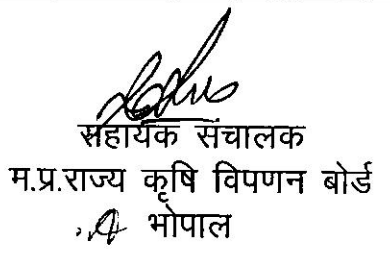 सहायक संचालक
म.प्र.राज्य कृषि विपणन बोर्ड
भोपाल